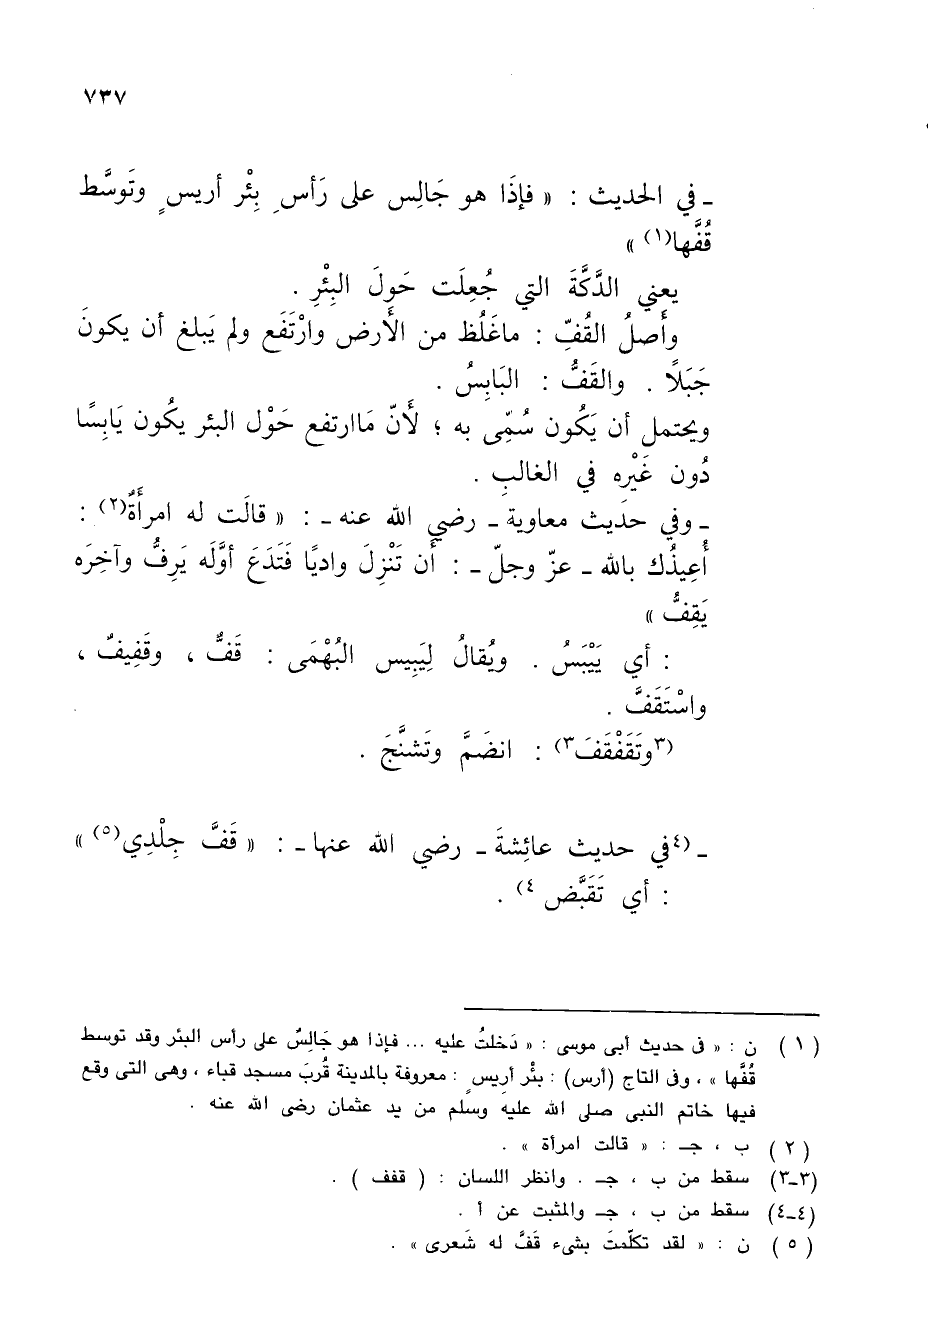 ٧٣٧
ـ في الحديث : « فإذَا هو جَالِس على رَأس ِ بِئْر أريس ٍ وتَوسَّط
قُفَّها(١) »
يعني الدَّكَّةَ التي جُعِلَت حَولَ البِئْرِ .
وأَصلُ القُفِّ : ماغَلُظ من الأَرض وارْتَفَع ولم يَبلغ أن يكونَ
جَبَلًا . والقَفُّ : اليَابِسُ .
ويحتمل أن يَكُون سُمِّى به ؛ لأَنّ مَاارتفع حَوْل البئر يكُون يَابِسًا
دُون غَيْره في الغالبِ .
ـ وفي حدَيث معاوية ـ رضي الله عنه ـ : « قالَت له امرأَةٌ(٢) :
أُعِيذُك بالله ـ عزّ وجلّ ـ : أن تَنْزِلَ واديًا فَتَدَعَ أوَّلَه يَرِفُّ وآخِرَه
يَقِفُّ »
: أي يَيْبَسُ . ويُقالُ لِيَبِيس البُهْمَى : قَفٌّ ، وقَفِيفٌ ،
واسْتَقَفَّ .
(٣وتَقَفْقَفَ٣) : انضَمَّ وتَشنَّجَ .
ـ (٤في حديث عائِشةَ ـ رضي الله عنها ـ : « قَفَّ جِلْدِي(٥) »
: أي تَقَبَّض ٤) .
( ١ ) ن : « فى حديث أبى موسى : « دَخلتُ عليه ... فإذا هو جَالِسٌ على رأس البئر وقد توسط
قُفَّها » ، وفى التاج (أرس) : بئْر أَرِيسٍ : معروفة بالمدينة قُربَ مسجد قباء ، وهى التى وقع
فيها خاتم النبى صلى الله عليه وسلم من يد عثمان رضى الله عنه .
( ٢ ) ب ، جـ : « قالت امرأة » .
(٣ـ٣) سقط من ب ، جـ . وانظر اللسان : ( قفف ) .
(٤ـ٤) سقط من ب ، جـ والمثبت عن أ .
( ٥ ) ن : « لقد تكلّمتَ بشىء قَفَّ له شَعرى » .